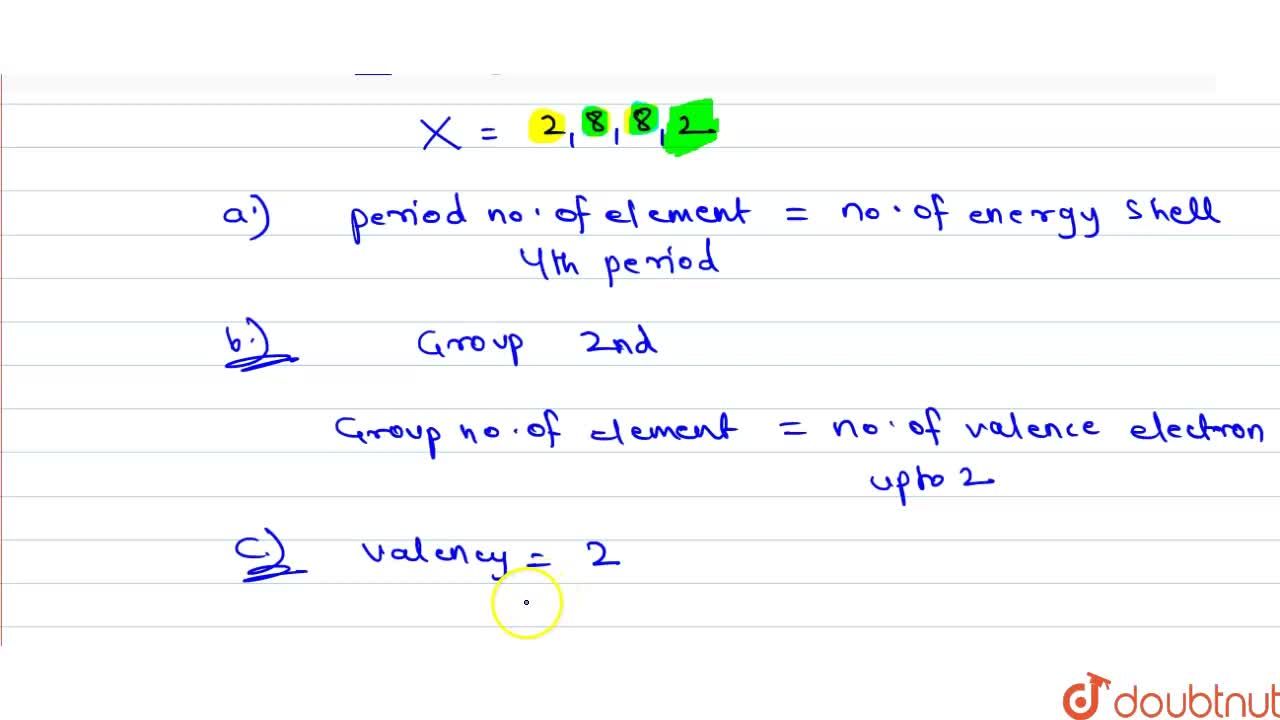 X = 2, 8, 8, 2
a.) period no. of element = no. of energy shell
4th period
b.) Group 2nd
Group no. of element = no. of valence electron
upto 2
c.) valency = 2
doubtnut